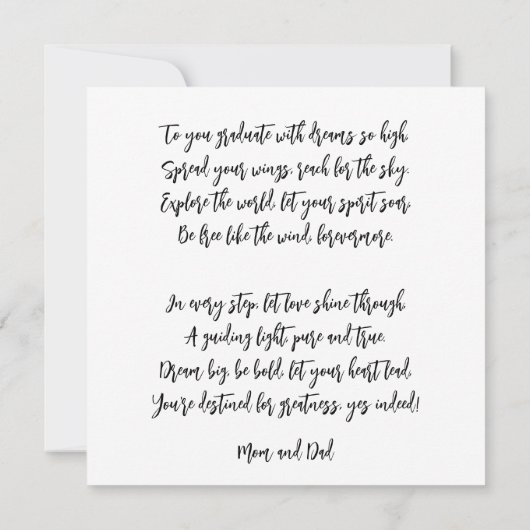 To you graduate with dreams so high,
Spread your wings, reach for the sky.
Explore the world, let your spirit soar,
Be free like the wind, forevermore.
In every step, let love shine through,
A guiding light, pure and true.
Dream big, be bold, let your heart lead,
You're destined for greatness, yes indeed!
Mom and Dad